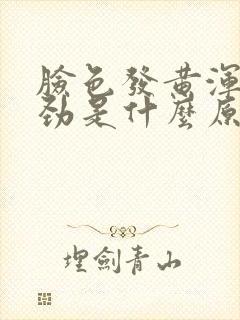 臉色發黃渾
勁是什麼原
埋劍青山